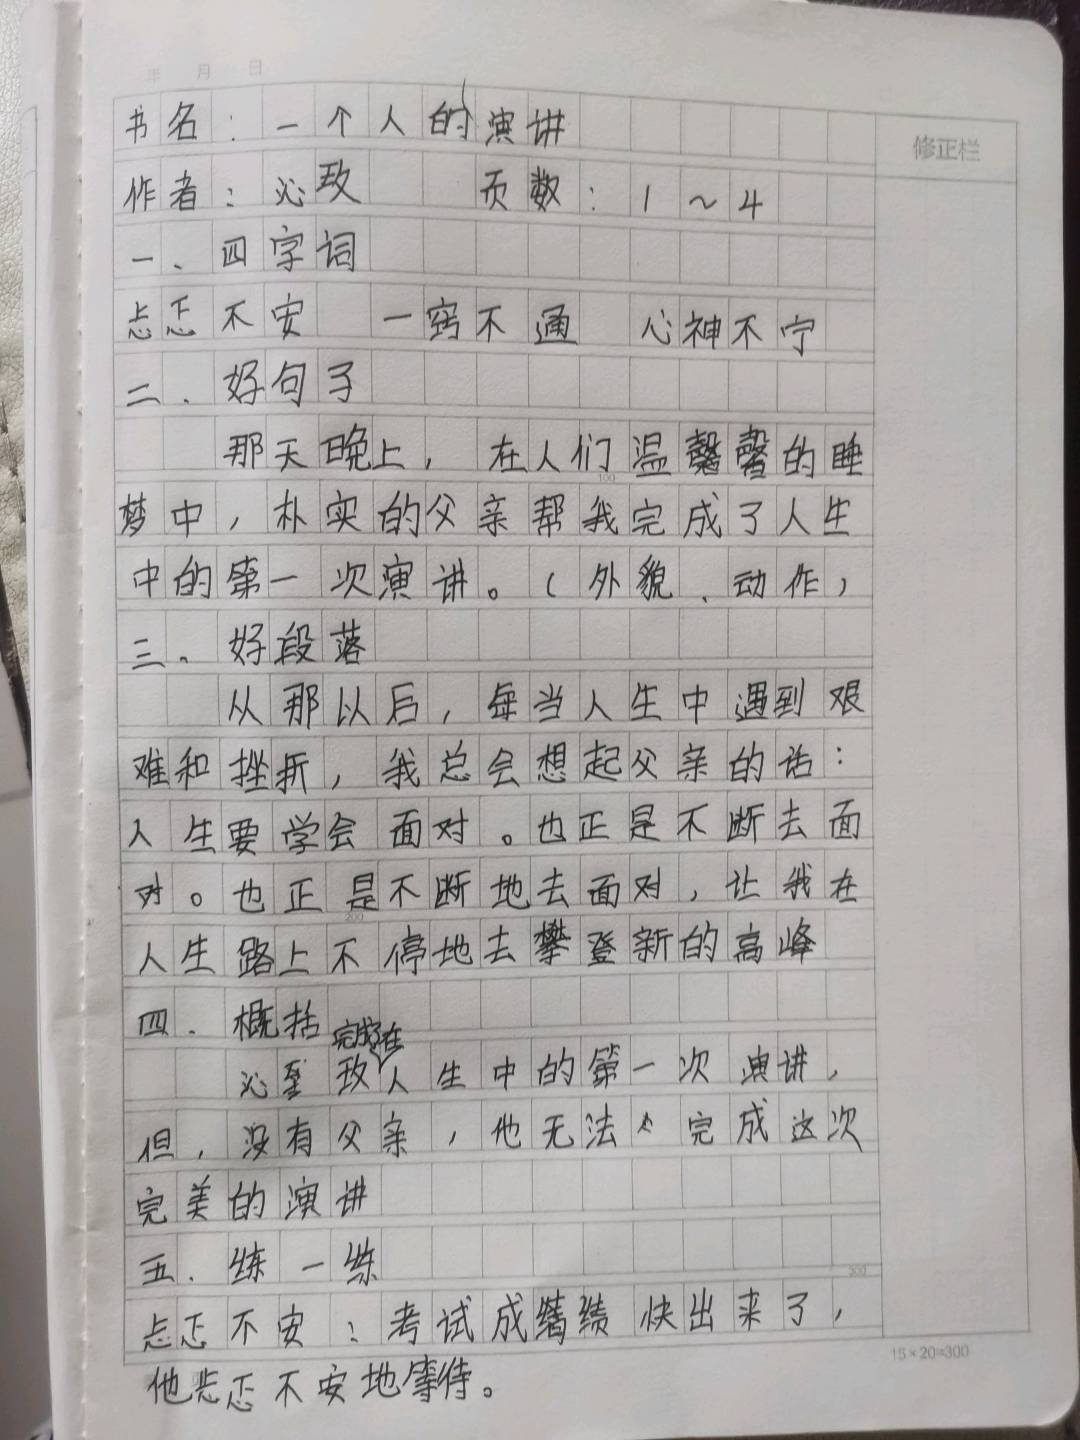 年 月 日
修正栏
书名：一个人的演讲
作者：沁玫 页数：1～4
一、四字词
忐忑不安 一窍不通 心神不宁
二．好句子
那天晚上，在人们温馨的睡
梦中，朴实的父亲帮我完成了人生
中的第一次演讲。（外貌、动作）
三。好段落
从那以后，每当人生中遇到艰
难和挫折，我总会想起父亲的话：
人生要学会面对。也正是不断去面
对。也正是不断地去面对，让我在
人生路上不停地去攀登新的高峰
四．概括
完成了在
沁玫人生中的第一次演讲，
但，没有父亲，他无法完成这次
完美的演讲
五．练一练
忐忑不安：考试成绩快出来了，
他忐忑不安地等待。
100
200
300
15×20=300